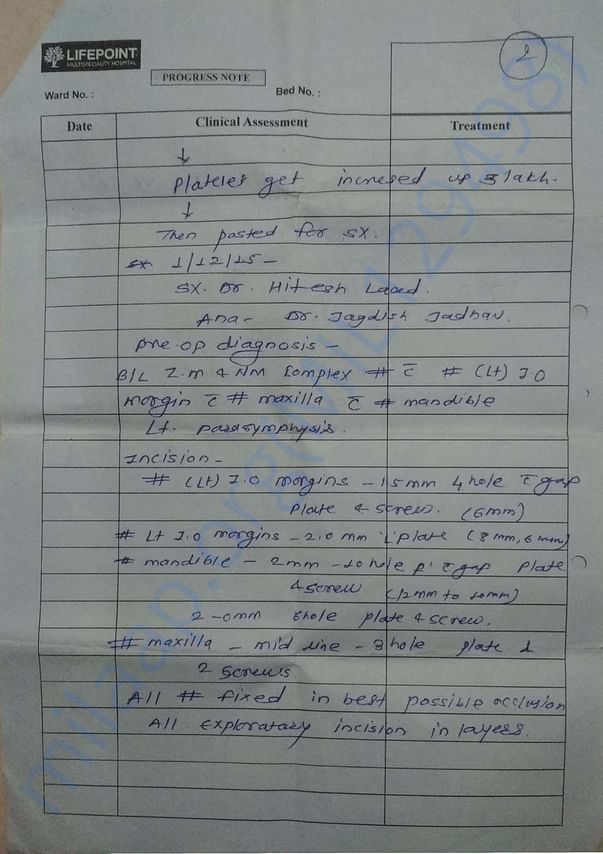 2
LIFEPOINT
MULTISPECIALITY HOSPITAL
PROGRESS NOTE
Ward No. :
Bed No. :
Date
Clinical Assessment
Treatment
↓
Platelet get incresed up 3 lakh.
↓
Then posted for SX.
1/12/15 –
SX. Dr. Hitesh
Ana- Dr. Jagdish Jadhav.
pre.op diagnosis –
B/L Z.M & NM Complex # c̄ # (Lt) I.O
margin c̄ # maxilla c̄ # mandible
Lt. parasymphysis.
Incision –
# (Lt) I.O margins – 1.5mm 4 hole c̄ gap
plate & screw. (6mm)
# Lt I.O margins – 2.0 mm 'L' plate (8mm, 6mm)
# mandible – 2mm – 10 hole c̄ gap plate
& screw (12mm to 10mm)
2-0mm 6hole plate & screw.
# maxilla – mid line – 3hole plate &
2 screws
All # fixed in best possible occlusion
All exploratary incision in layers.
milaap.org